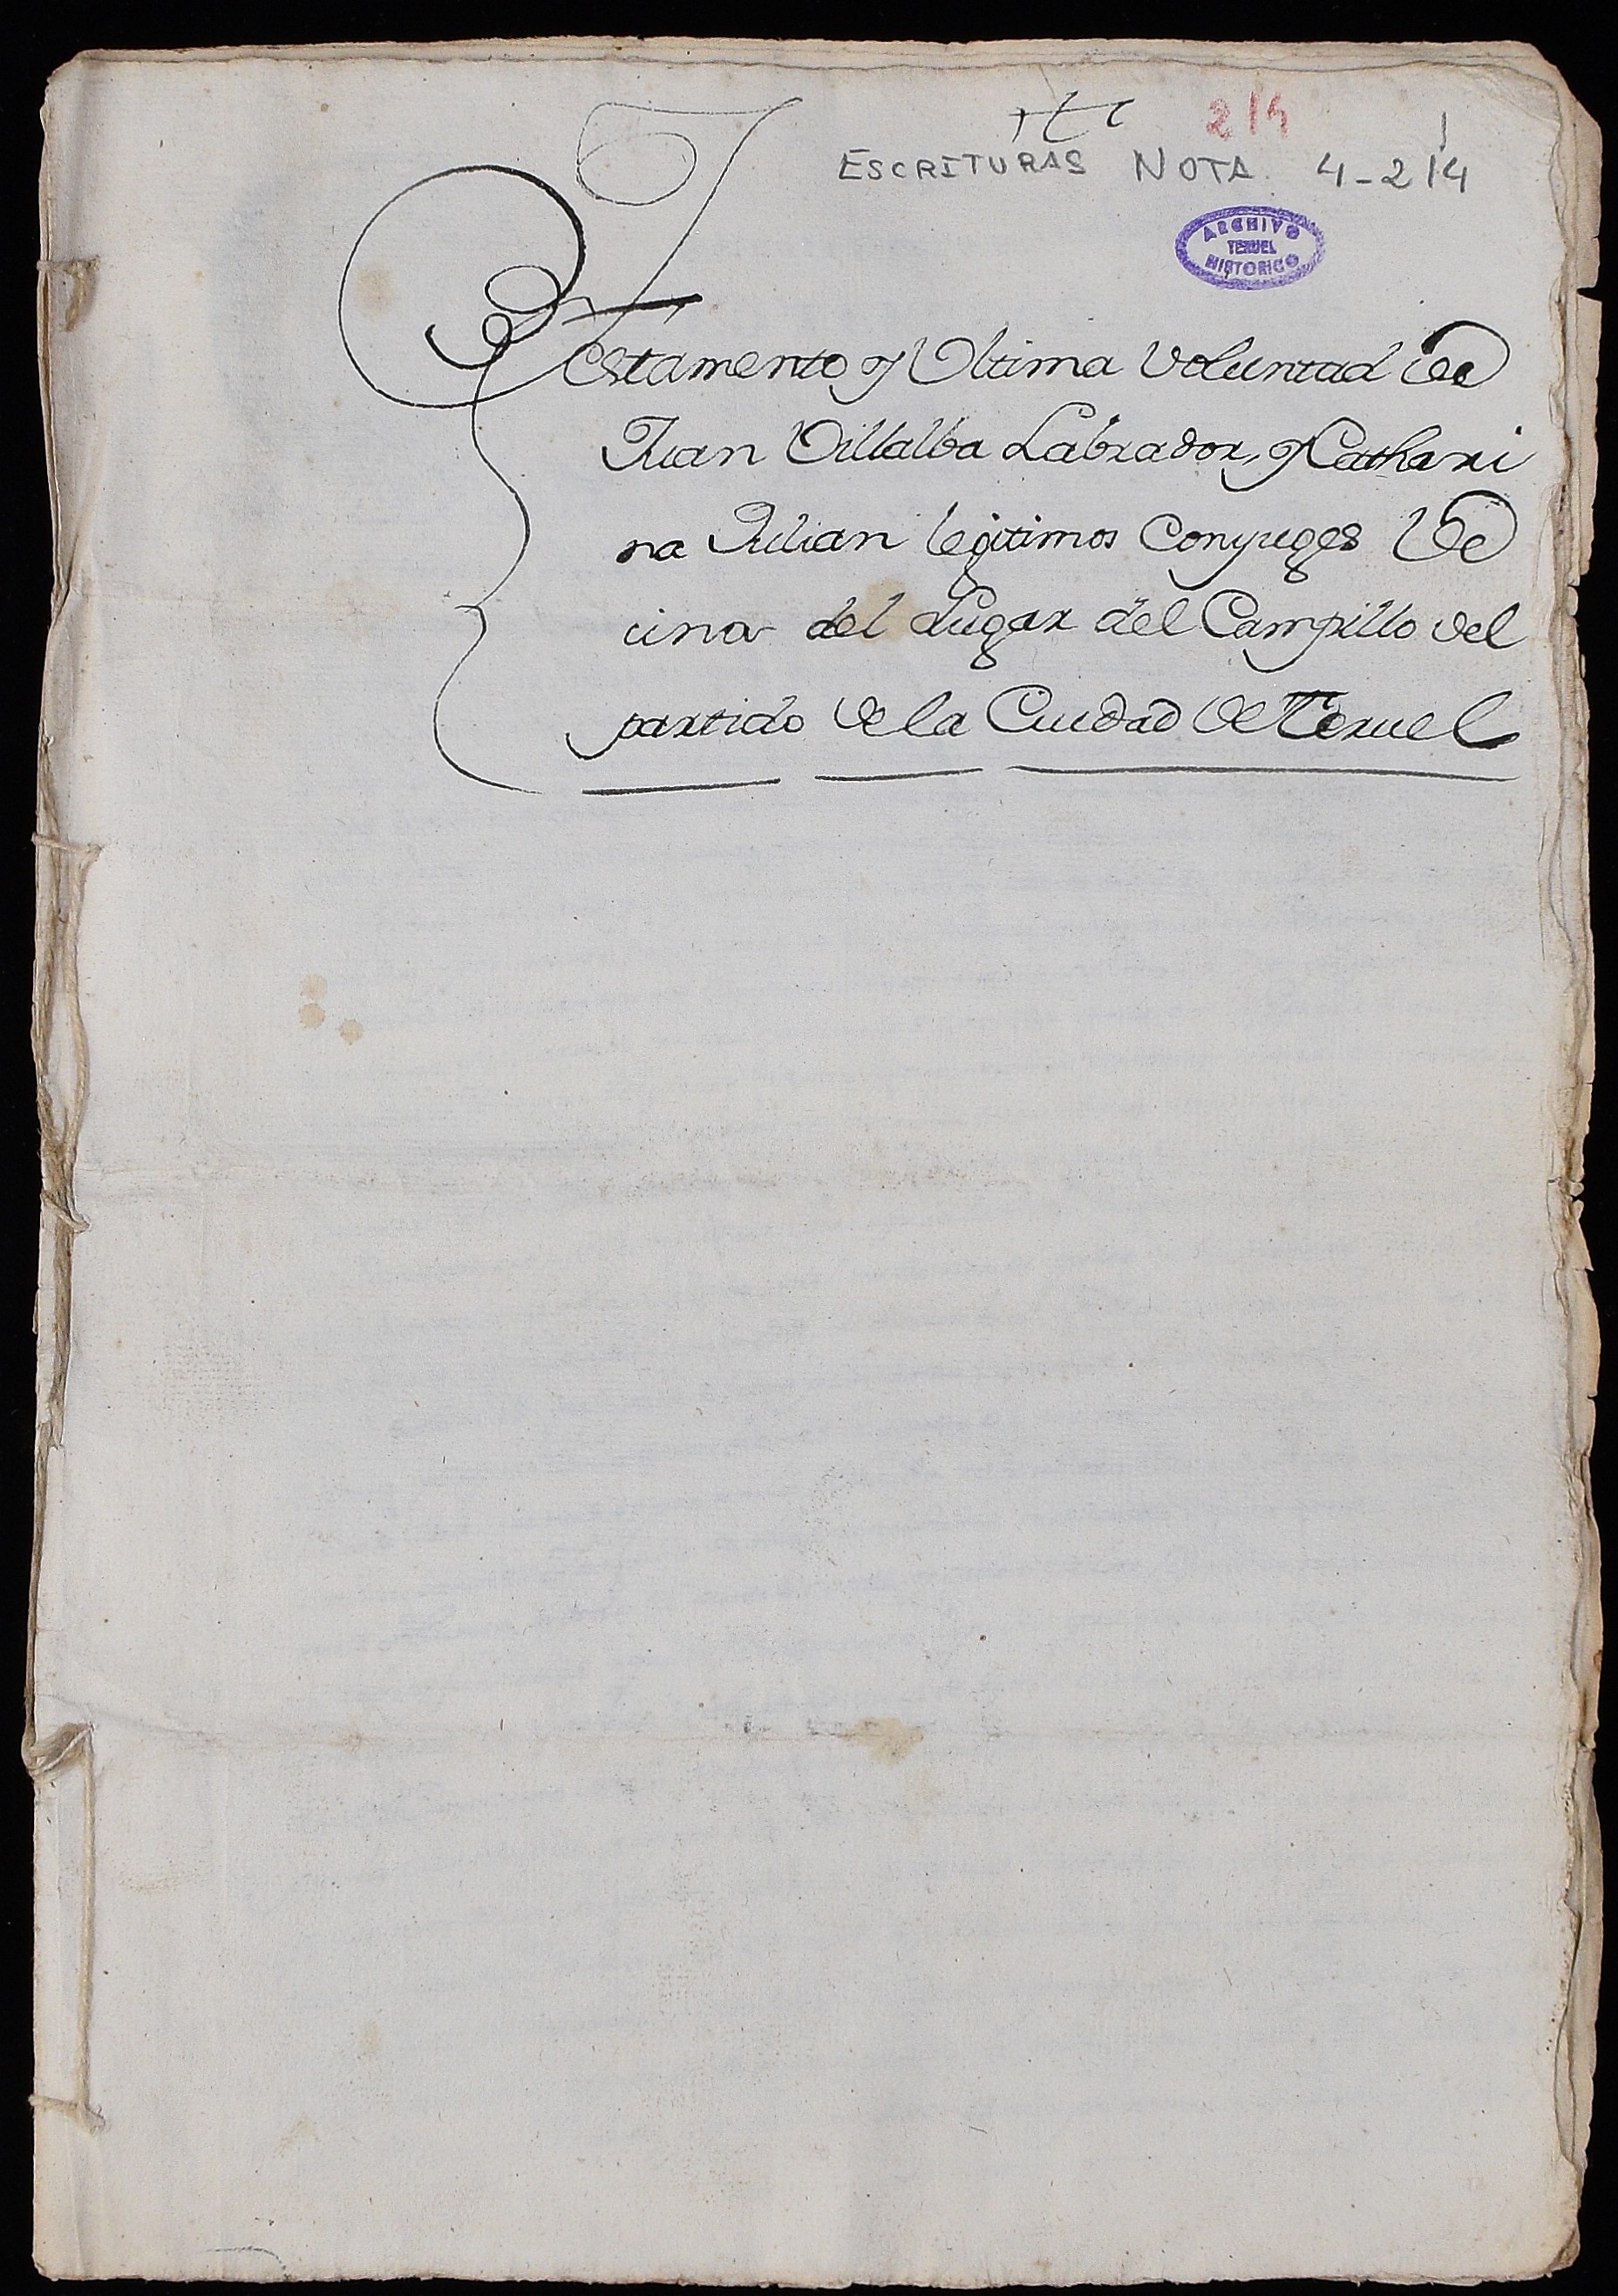 214
ESCRITURAS NOTA. 4-214
ARCHIVO
TERUEL
HISTORICO
Testamento y Ultima Voluntad de
Juan Villalba Labrador, y Cathari
na Julian legitimos Conyuges Ve
cinos del Lugar del Campillo del
partido de la Ciudad de Teruel